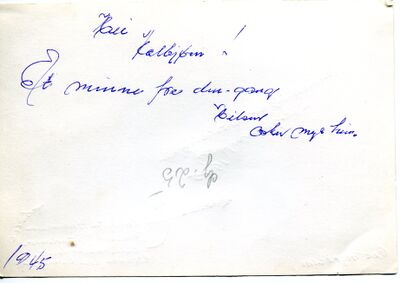 Hei
Kolbjørn !
Et minne fra den-gang
Hilsen
1945